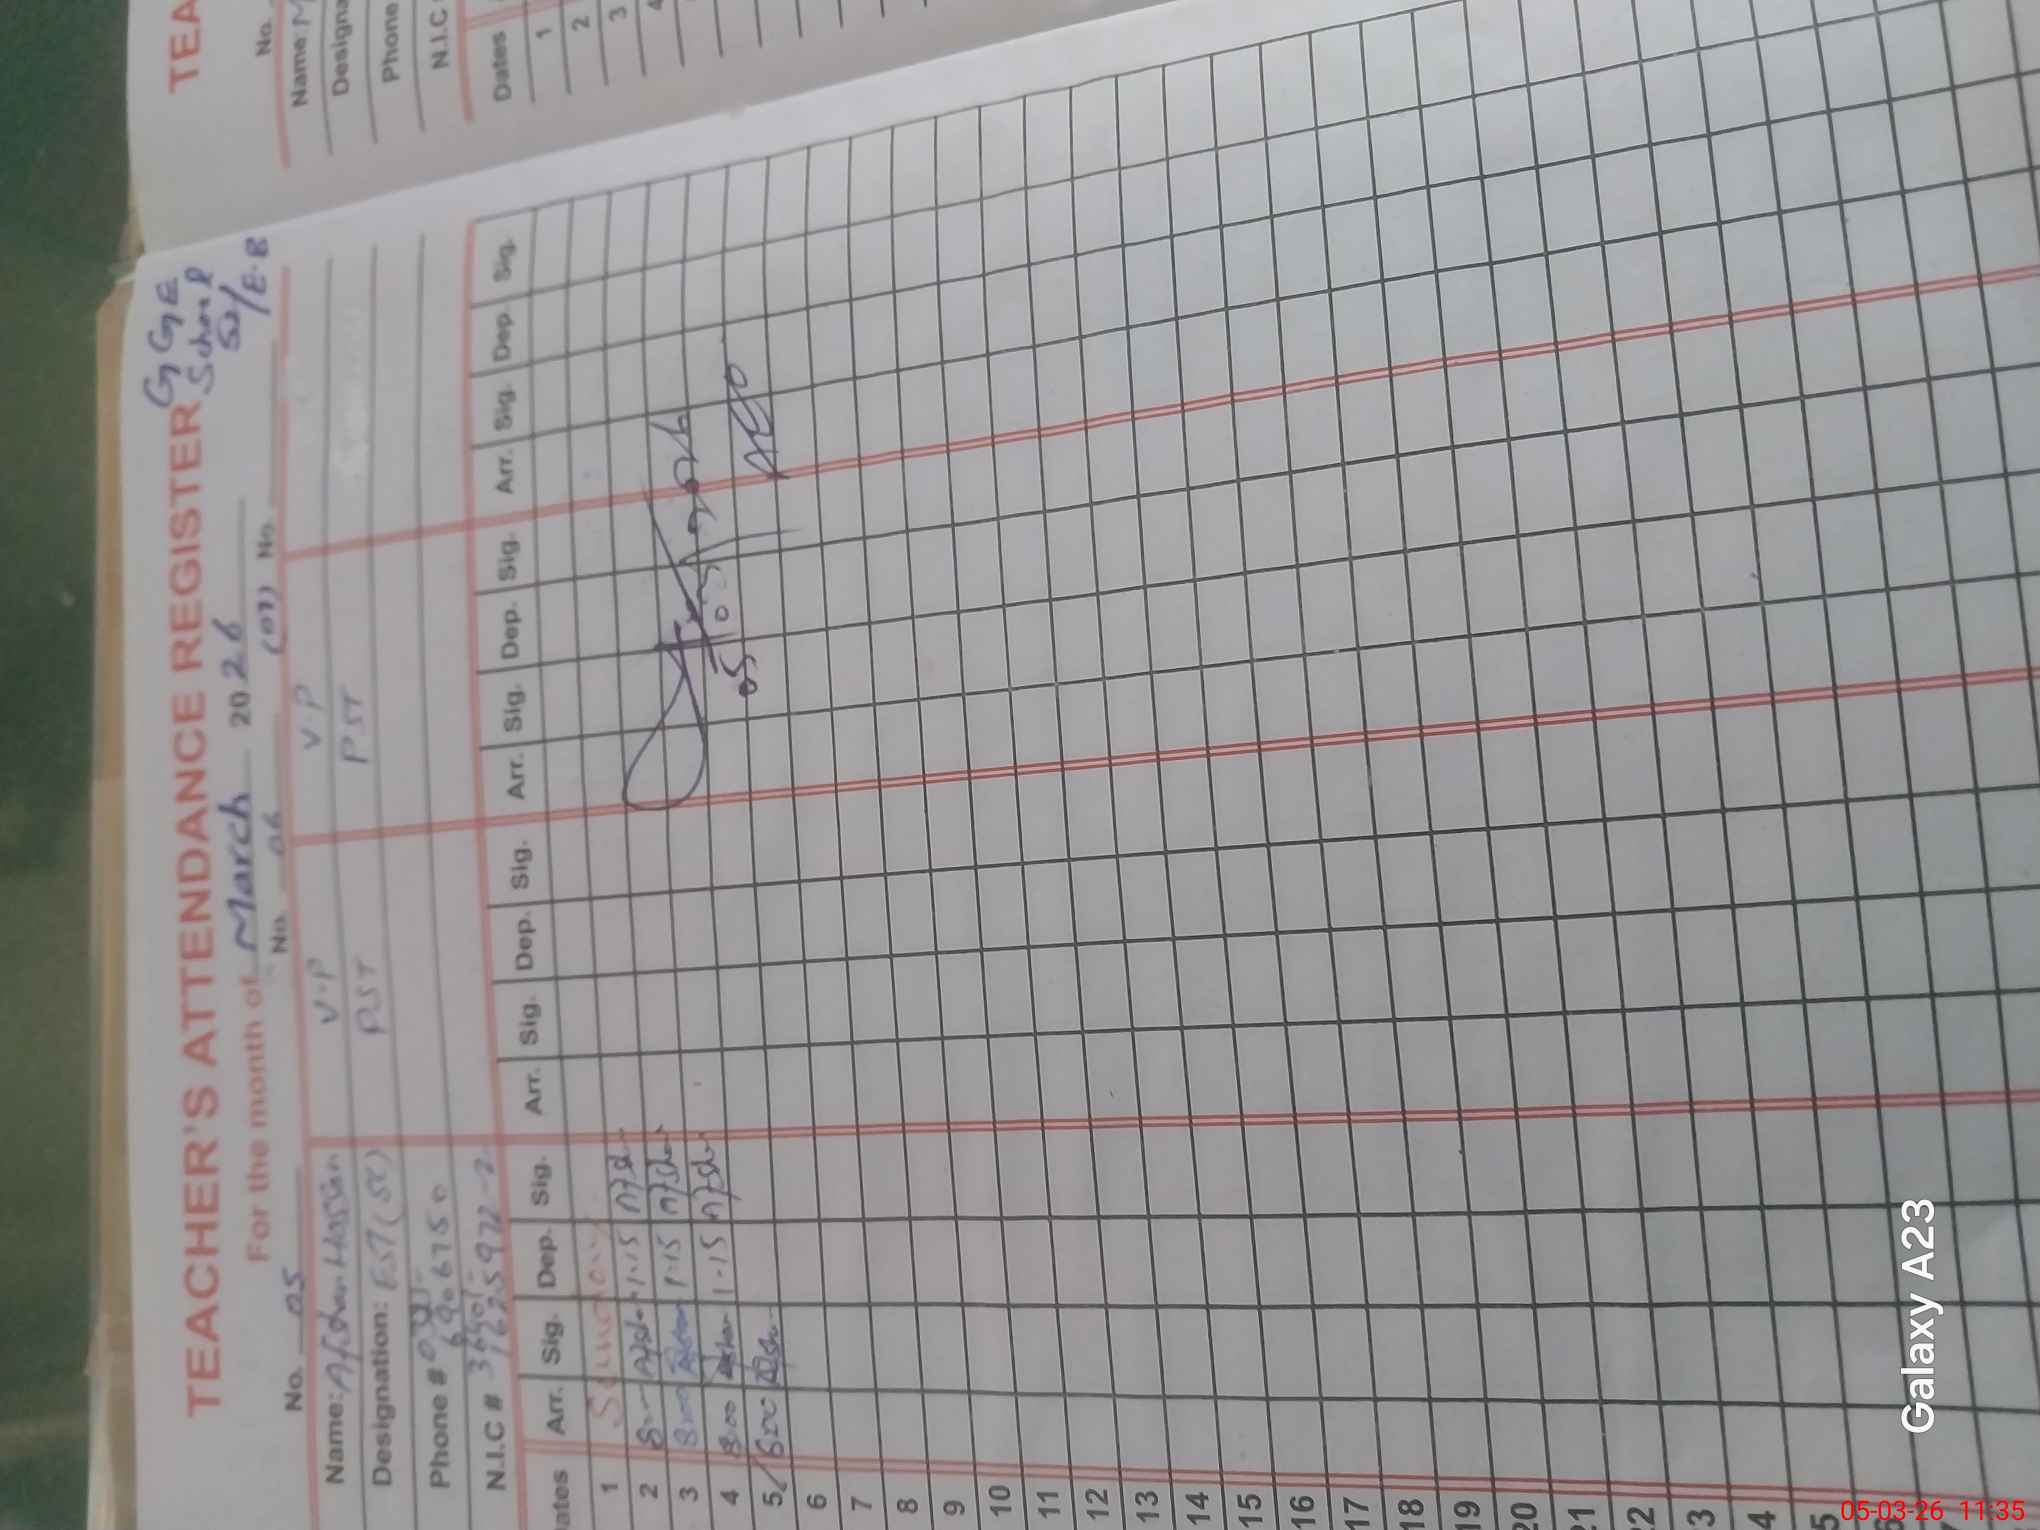 TEACHER'S ATTENDANCE REGISTER
G GE
School
52/E.B
For the month of March 2026
No. 05 No. 06 (07) No.
Name: Afshan Hassan V.P V.P
Designation: EST (SC) PST PST
Phone #
N.I.C #
Dates Arr. Sig. Dep. Sig. Arr. Sig. Dep. Sig. Arr. Sig. Dep. Sig. Arr. Sig. Dep. Sig.
1 Sunday
2 1.15 Afsh
3 8:00 Afshan 1.15 Afshan
4 8:00 Afshan 1.15 Afsh
5 800 Afsh
05/03/2026
AEO
6
7
8
9
10
11
12
13
14
15
16
17
18
19
20
21
22
3
4
5
TEA
No.
Name: M
Designa
Phone
N.I.C
Dates
1
2
3
4
Galaxy A23
05-03-26 11:35